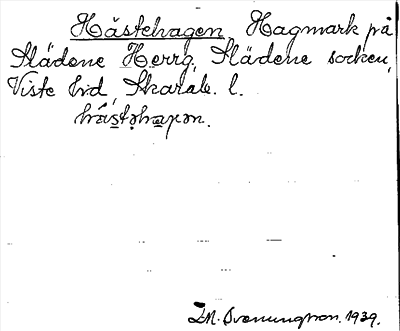 Hästehagen, Hagmark på
Slädene Herrg, Slädene socken,
Viste hd, Skarab. l.
hästəhaɣən.
I.N. Svenungsson. 1939.